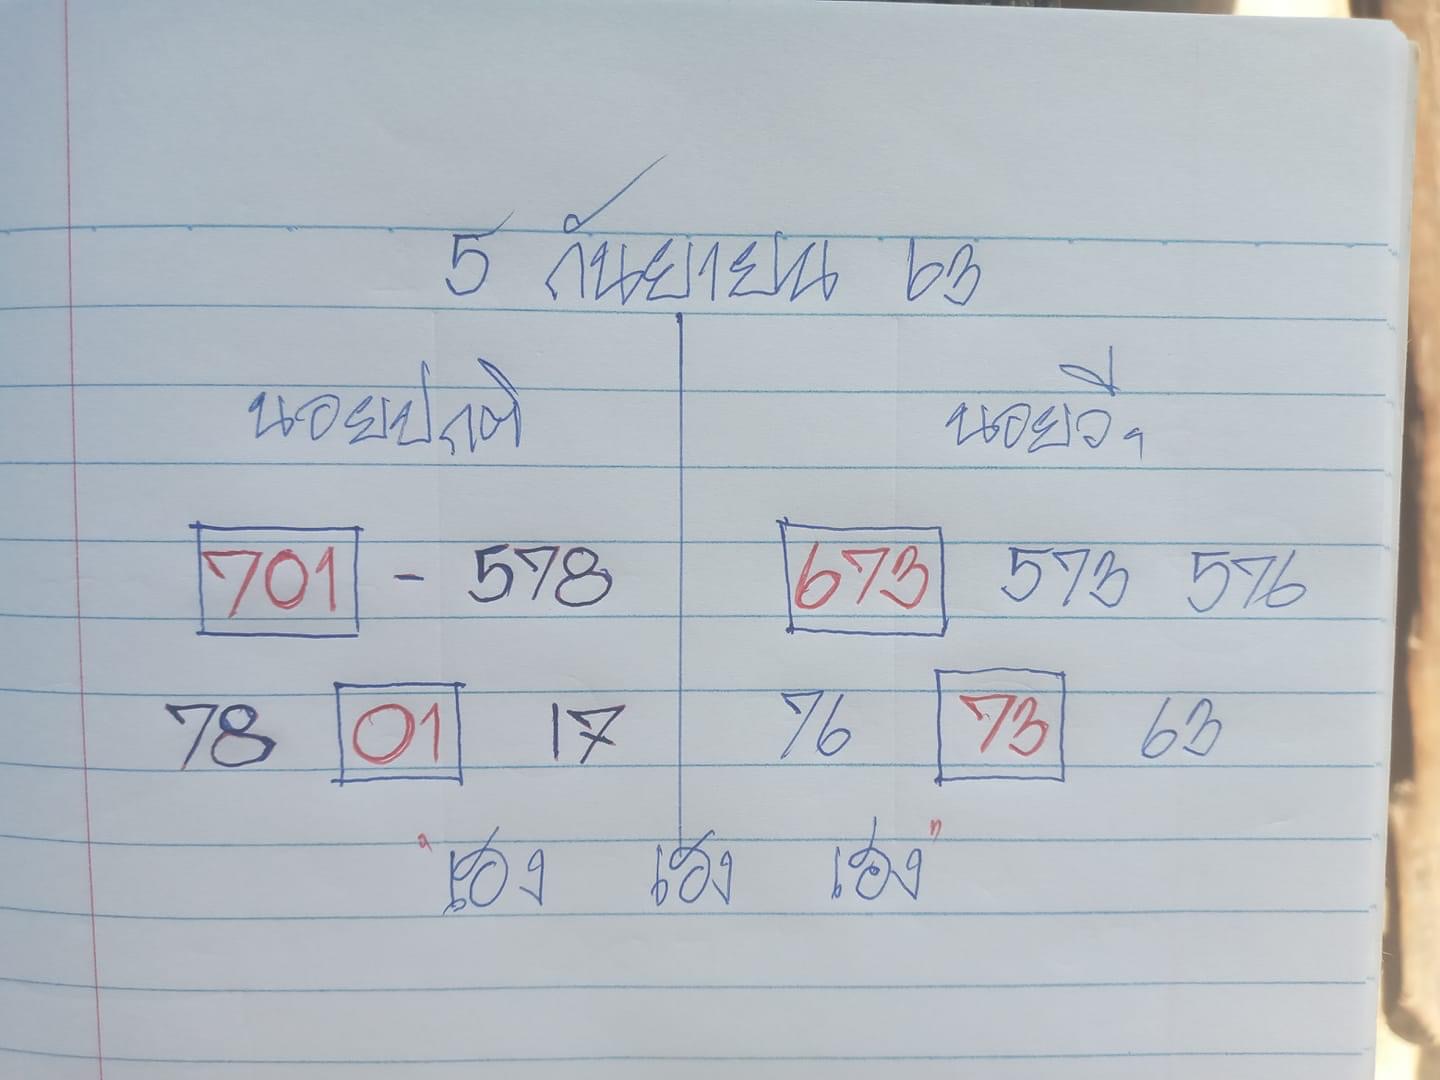 5 กันยายน 63
นอยปกติ
นอยวีๆ
701 - 578
673 573 576
78 01 17
76 73 63
"เฮง เฮง เฮง"